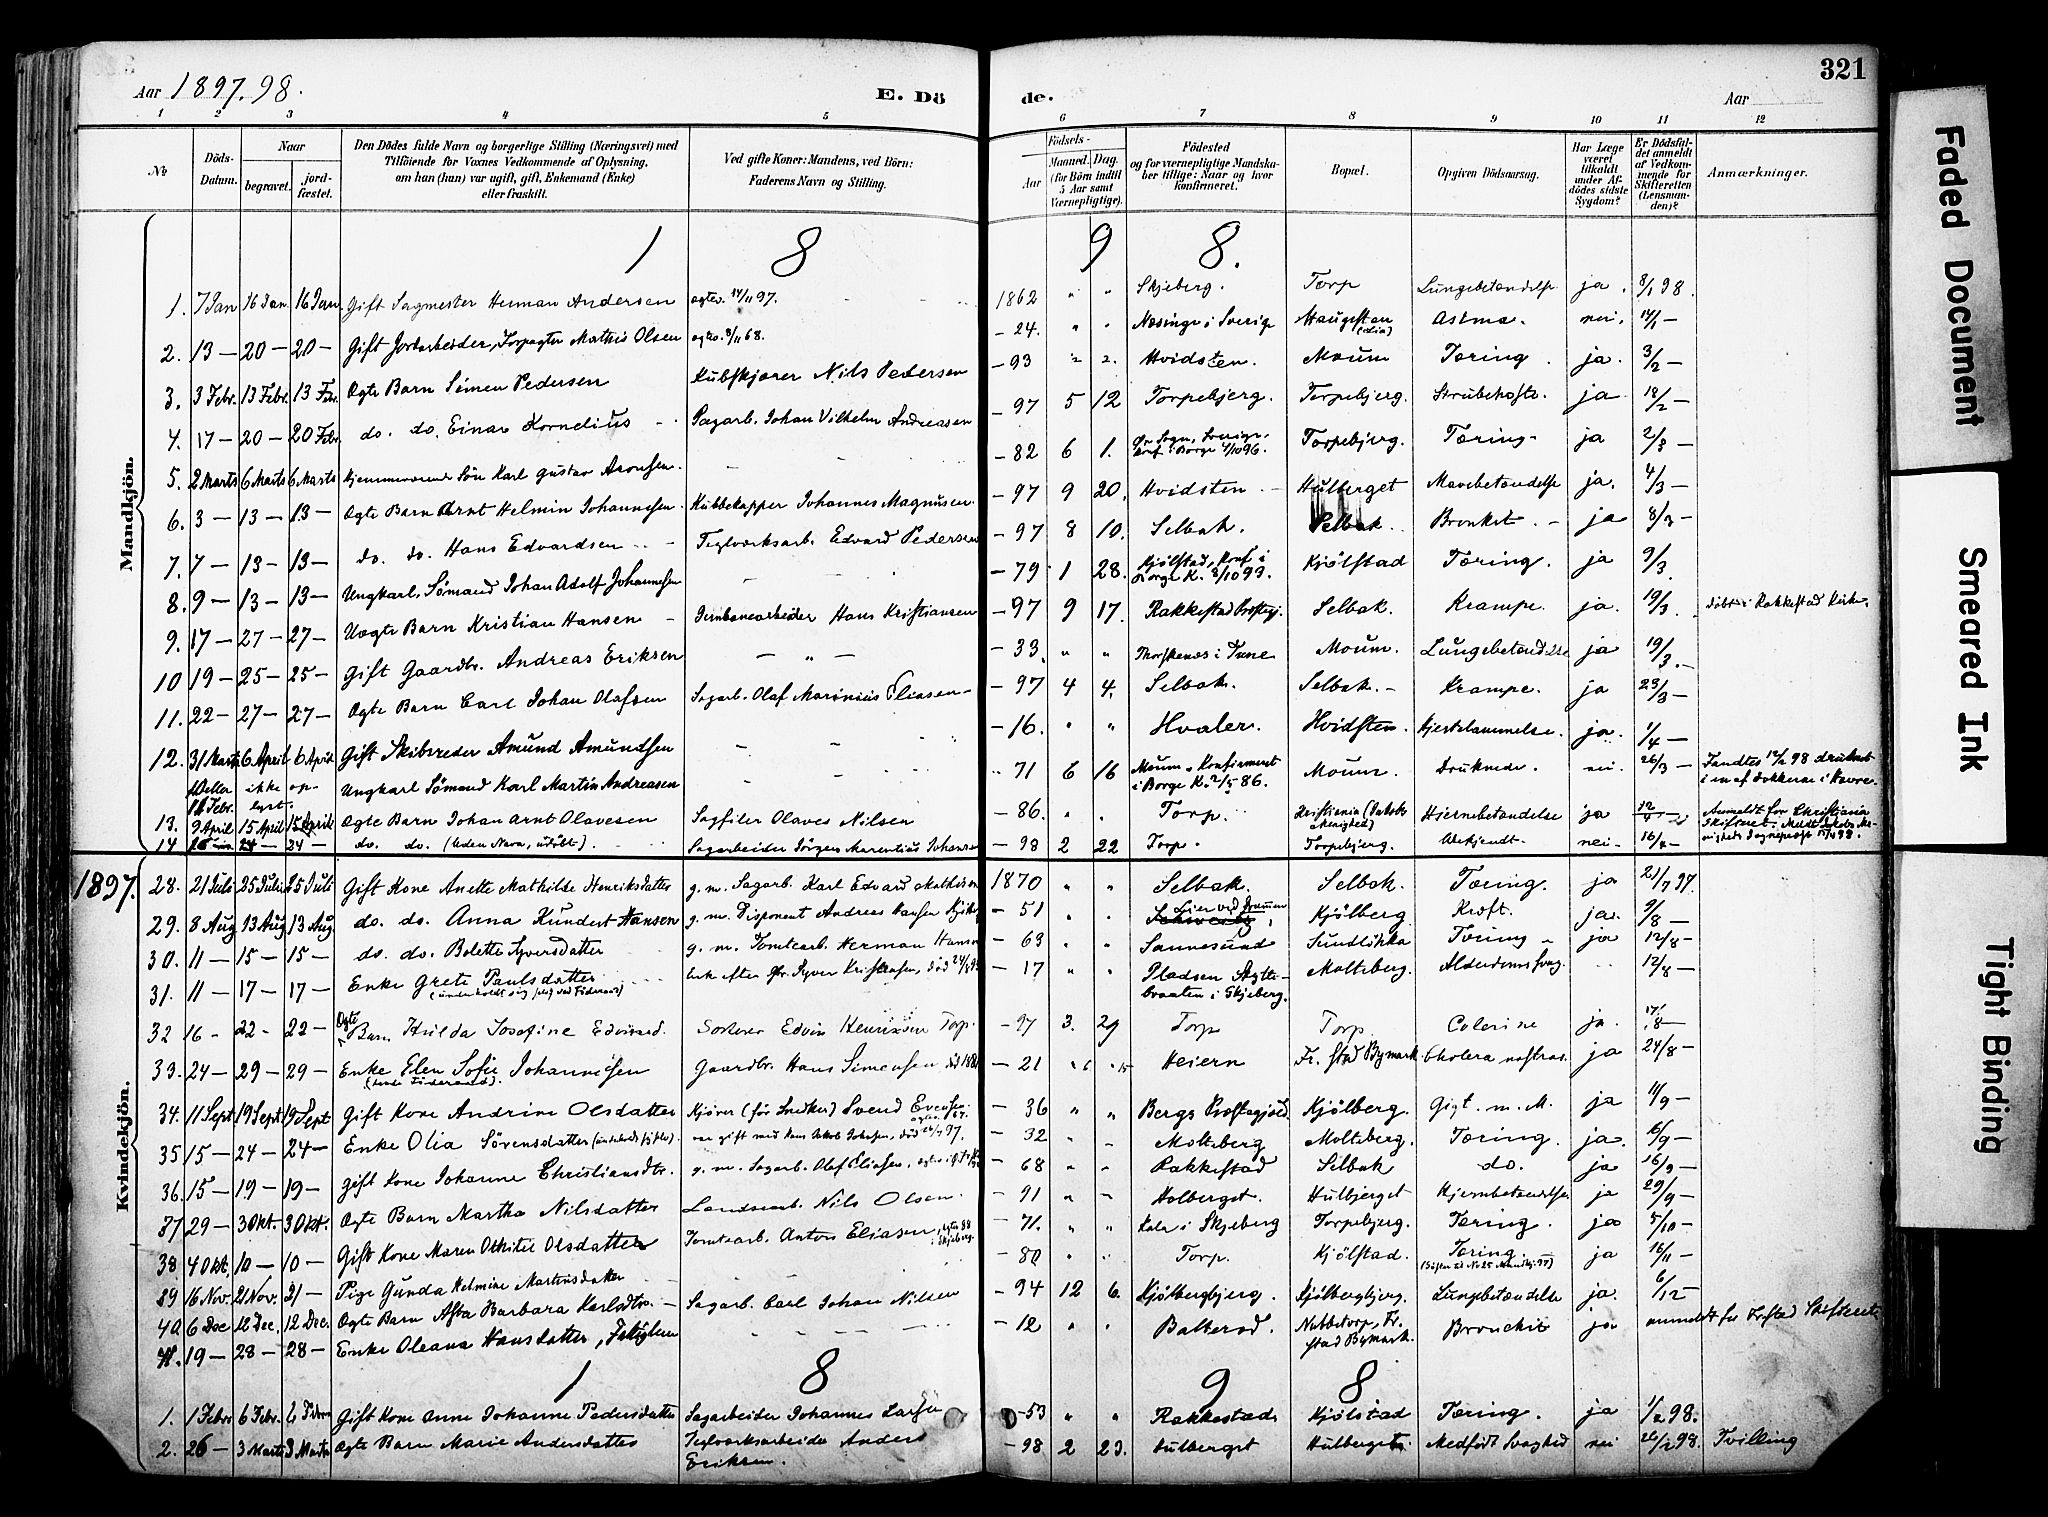 Aar 1897.98.
E. Dö
de.
Aar
321
1 2 3 4 5 6 7 8 9 10 11 12
No
Döds-Datum.
Naar
begravet.
jord-fæstet.
Den Dödes fulde Navn og borgerlige Stilling (Næringsvei) med
Tilföiende for Voxnes Vedkommende af Oplysning,
om han (hun) var ugift, gift, Enkemand (Enke)
eller fraskilt.
Ved gifte Koner: Mandens, ved Börn:
Faderens Navn og Stilling.
Födsels-
Aar
Maaned. Dag.
(for Börn indtil 5 Aar samt Værnepligtige).
Födested
og for værnepligtige Mandska-
ber tillige: Naar og hvor
konfirmeret.
Bopæl.
Opgiven Dödsaarsag.
Har Læge været tilkaldt under Afdödes sidste Sygdom?
Er Dödsfaldet anmeldt af Vedkommende for Skifteretten (Lensmanden)?
Anmærkninger.
Mandkjön.
1 8 9 8.
1. 7 Jan 16 Jan. 16 Jan. Gift Sagmester Herman Andersen 14/11 97. 1862 " " Skjeberg. Torp Lungebetændelse ja. 8/1 98.
2. 13 — 20 — 20 — Gift Jordarbeider, Mathis Olsen 68. — 24. " " Næsinge i Sverige Haugesten Astma. nei. 14/1 —
3. 3 Febr. 13 Febr. 13 Febr. Ægte Barn Simen Pedersen Kubskjærer Nils Pedersen — 93 2 2. Hvidsten. Moum Tæring. ja. 3/2 —
4. 17 — 20 — 20 Febr. do. do. Einar Kornelius Sagarb. Johan Vilhelm Andreassen — 97 5 12 Torpebjerg. Torpebjerg. Strubehoste. ja. 18/2 —
5. 2 Marts 6 Marts 6 Marts Hjemmeværende Sön Karl Gustav Aronsen — 82 6 1. Torpebjerg. Tæring. ja 2/3 —
6. 3 — 13 — 13 — Ægte Barn Arnt Helmin Johannesen. Kubbekapper Johannes Magnusen — 97 9 20. Hvidsten Hulberget Mavebetændelse ja. 4/3 —
7. 7 — 13 — 13 — do. do. Hans Edvardsen Teglværksarb. Edvard Pedersen — 97 8 10. Selbak. Selbak. Bronkit. ja 8/3 —
8. 9 — 13 — 13 — Ungkarl, Sömand Johan Adolf Johannesen — 79 1 28. Kjölstad, Konf. i Borge K. 8/10 93. Kjölstad Tæring. ja 9/3.
9. 17 — 27 — 27 — Uægte Barn Kristian Hansen Jernbanearbeider Hans Kristiansen — 97 9 17. Rakkestad Prestegj. Selbak. Krampe. ja. 19/3. Döbt i Rakkestad Kirke.
10 19 — 25 — 25 — Gift Gaardbr. Andreas Eriksen — " — — 33. " " Thorskenæs i Tune Moum. Lungebetændelse ja 19/3. —
11. 22 — 27 — 27 — Ægte Barn Carl Johan Olafsen Sagarb. Olaf Marinius Eliasen — 97 4 4. Selbak. Selbak. Krampe. ja 23/3 —
12. 31 Marts 6 April 6 April Gift Skibsreder Amund Amundsen — 16. " " Hvaler. Hvidsten. Hjertelammelse. ja. 1/4 —
eller 12 Febr. ikke oplyst. Ungkarl Sömand Karl Martin Andreasen 71 6 16 Moum. Konfirmeret i Borge K. 2/5 86. Moum. Druknede. nei. 26/3 — Fandtes 12/2 98 druknet i en af Dokkerne i Havre.
13. 9 April 15 April 15 April Ægte Barn Johan Arnt Olavesen Sagfiler Olaves Nilsen — 86. " . Torp. Kristiania Hjernebetændelse ja Anmeldt for Christiania Skifteret.
14 24 — 24 — do. do. (Uden Navn, udöbt). Sagarbeider Jörgen Marentius Johansen — 98 2 22 Torp. Torpebjerg. Ubekjendt. nei. 16/4 —
1897.
Kvindekjön.
28. 21 Juli 25 Juli 25 Juli Gift Kone Anette Mathilde Henriksdatter g. m. Sagarb. Karl Edvard Mathisen 1870 " " Selbak. Selbak. Tæring. ja 21/7 97.
29. 8 Aug 13 Aug 13 Aug. do. do. Anna Kundert Hansen g. m. Disponent Andreas Hansen — 51 " . Lier ved Drammen Kjölberg Kræft. ja. 9/8 —
30. 11 — 15 — 15 — do. do. Bolette Syversdatter g. m. Tomtearb. Herman Hansen — 63 " " Sannesund Sundlökka Tæring ja 12/8 —
31. 11 — 17 — 17 — Enke Grete Paulsdatter (underholdt sig selv ved Föderaad) Enke efter Gbr. Syver Kristensen, död — 17 " " Pladsen Skyttebraaten i Skjeberg. Molteberg. Alderdomssvag. 12/8 —
32 16 — 22 — 22 — Ægte Barn Hulda Josefine Edvinsd. Sorterer Edvin Henriksen Torp. — 97 3. 29 Torp Torp. Colerine ja. 17/8 —
33. 24 — 29 — 29 — Enke Elen Sofie Johannesen Gaardbr. Hans Simensen, — 21 Heiern Fr.stad Bymark Cholera nostras. ja 24/8 —
34. 11 Sept. 19 Sept. 19 Sept Gift Kone Andrine Olsdatter Kjörer (för Snedker) Svend Evensen — 36 " " Bergs Prestegjeld Kjölberg. Gigt. m. M. ja 11/9 —
35 15 — 24 — 24 — Enke Olia Sörensdatter var gift med Hans Jakob 97. — 32 " Molteberg Molteberg. Tæring. ja. 6/9 —
36. 15 — 19 — 19 — Gift Kone Johanne Christiansdtr. g. m. Sagarb. Olaf Eliasen, — 68 " " Rakkestad Selbak do. ja 16/9 —
37 29 — 3 Okt. 3 Okt. Ægte Barn Martha Nilsdatter Landsarb. Nils Olsen. — 91 " Holberget. Hulbjerget Hjernebetændelse ja 29/9 —
38 4 Okt. 10 — 10 — Gift Kone Maren Othilie Olsdatter Tomtearb. Anton Eliasen, — 71. " " i Skjeberg Torpebjerg. Tæring. ja 5/10 —
39 16 Nov. 21 Nov. 21 — Pige Gunda Helmine Martinsdatter — 80 " " Torp. Kjölstad. Tæring. ja 16/11 —
40 6 Dec 12 Dec. 12 Dec. Ægte Barn Asta Barbara Karlsdtr. Sagarb. Carl Johan Nilsen — 94 12 6. Kjölbergbjerg. Kjölbergbjerg. Lungebetændelse ja. 6/12 —
41. 19 — 28 — 28 — Enke Oleana Hansdatter, Fattiglem — 12 " Balterod. Nabbetorp, Fr.stad Bymark. Bronchit ja anmeldt for Fr.stad Skifteret
1 8 9 8
1. 1 Febr 6 Febr. 6 Febr Gift Kone Anne Johanne Pedersdatter Sagarbeider Johannes Larsen — 53 " " Rakkestad Kjölstad Tæring. ja 1/2 98.
2. 26 — 3 Marts 3 Marts Ægte Barn Marie Andersdatter Teglværksarbeider Anders Eriksen. — 98 2 23. Hulberget Hulberget. Medfödt Svaghed nei 26/2 98. Tvilling
Faded Document
Smeared Ink
Tight Binding